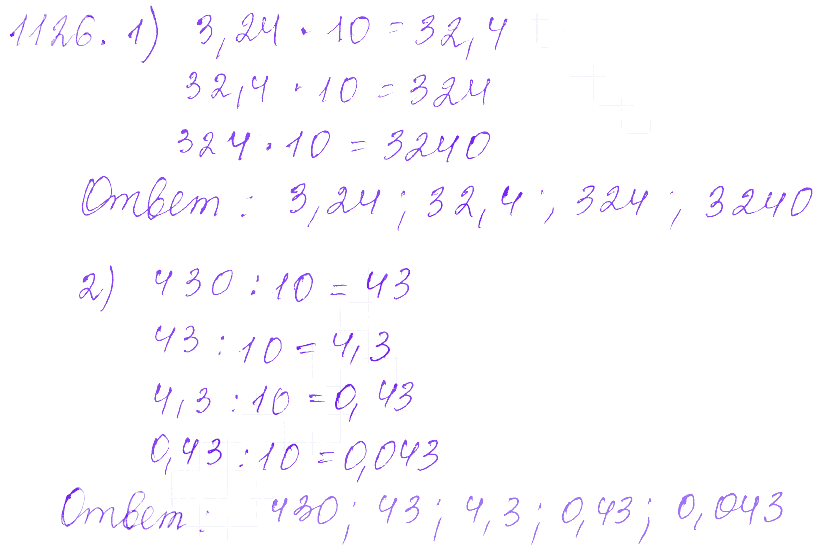 1126. 1) 3,24 · 10 = 32,4
32,4 · 10 = 324
324 · 10 = 3240
Ответ: 3,24; 32,4; 324; 3240
2) 430 : 10 = 43
43 : 10 = 4,3
4,3 : 10 = 0,43
0,43 : 10 = 0,043
Ответ: 430; 43; 4,3; 0,43; 0,043